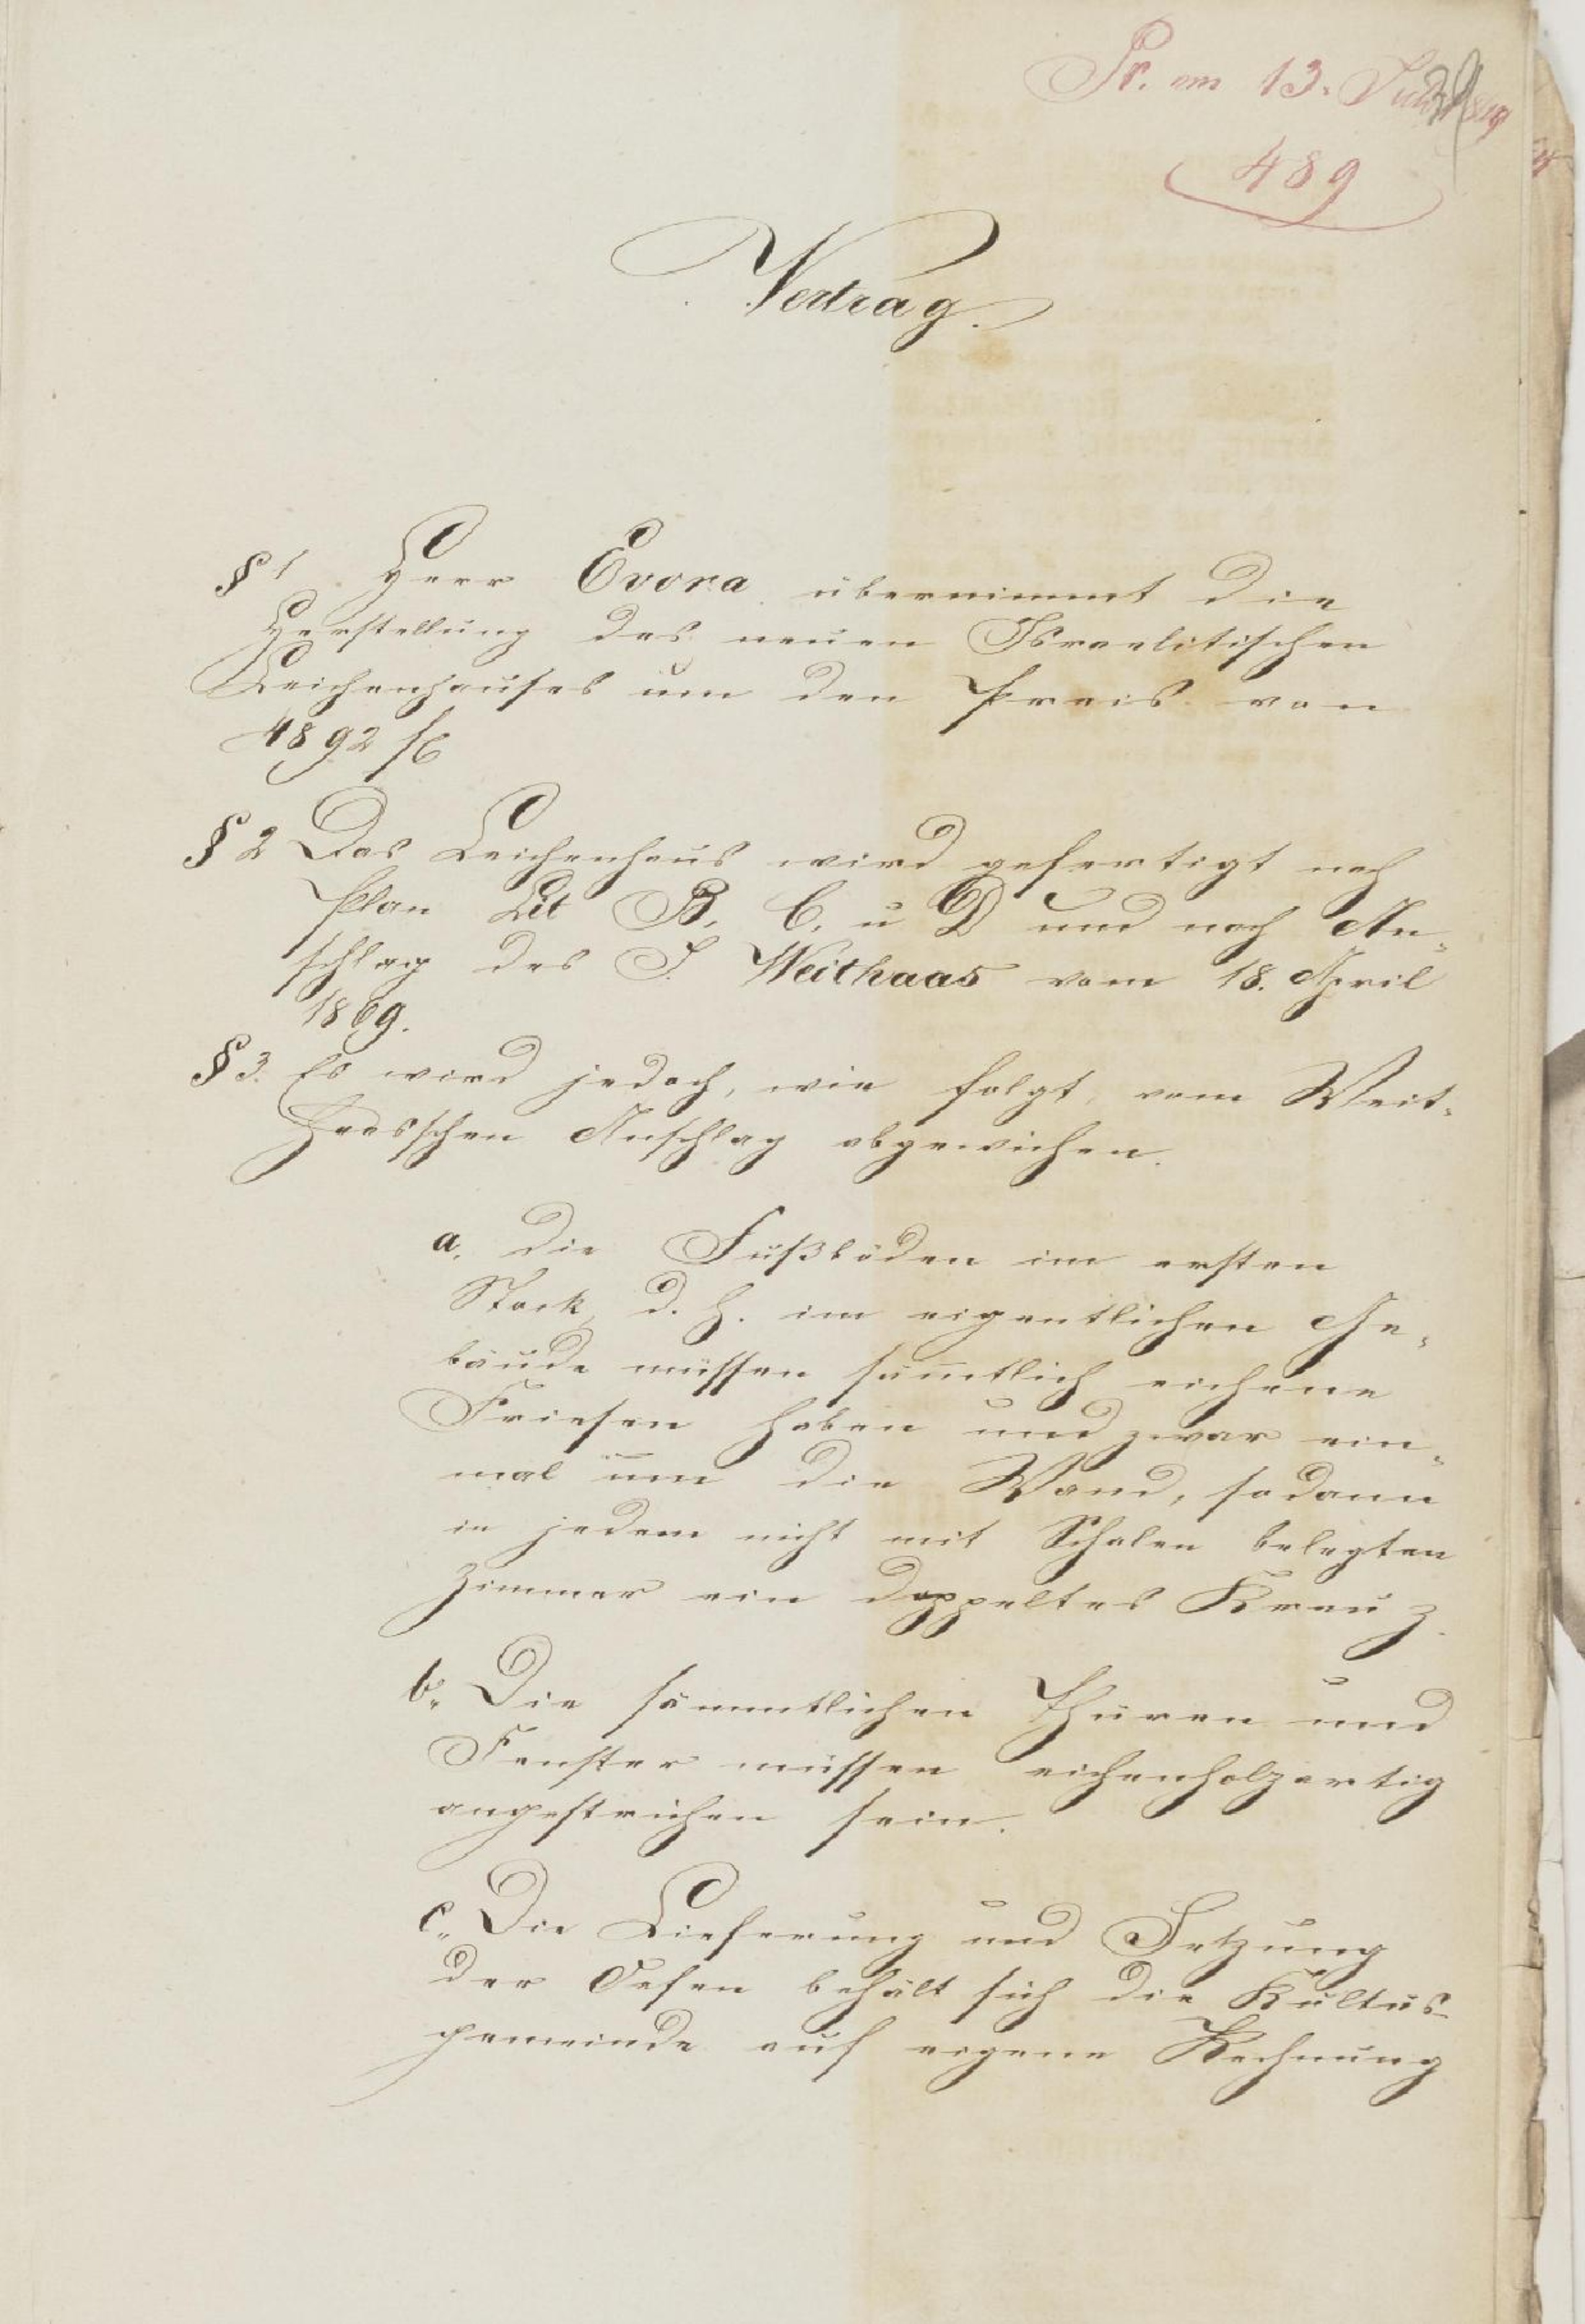 Pr. am 13. Juli 1869
489
Vertrag.
§ 1 Herr Evora übernimmt die
Herstellung des neuen Israelitischen
Leichenhauses um den Preis von
4892 fl
§ 2 Das Leichenhaus wird gefertigt nach
Plan Lit B, C, u D und nach An-
schlag des J. Weithaas vom 18. April
1869.
§ 3. Es wird jedoch, wie folgt, vom Weit-
haasschen Anschlag abgewichen.
a. die Fußböden im ersten
Stock, d. h. im eigentlichen Ge-
bäude müssen säm̅tlich eichene
Friesen haben und zwar ein-
mal um die Wand, sodann
in jedem nicht mit Schalen belegten
Zimmer ein doppeltes Kreuz.
b. Die sämmtlichen Thüren und
Fenster müssen eichenholzartig
angestrichen sein.
c. Die Lieferung und Setzung
der Oefen behält sich die Kultus-
gemeinde auf eigene Rechnung